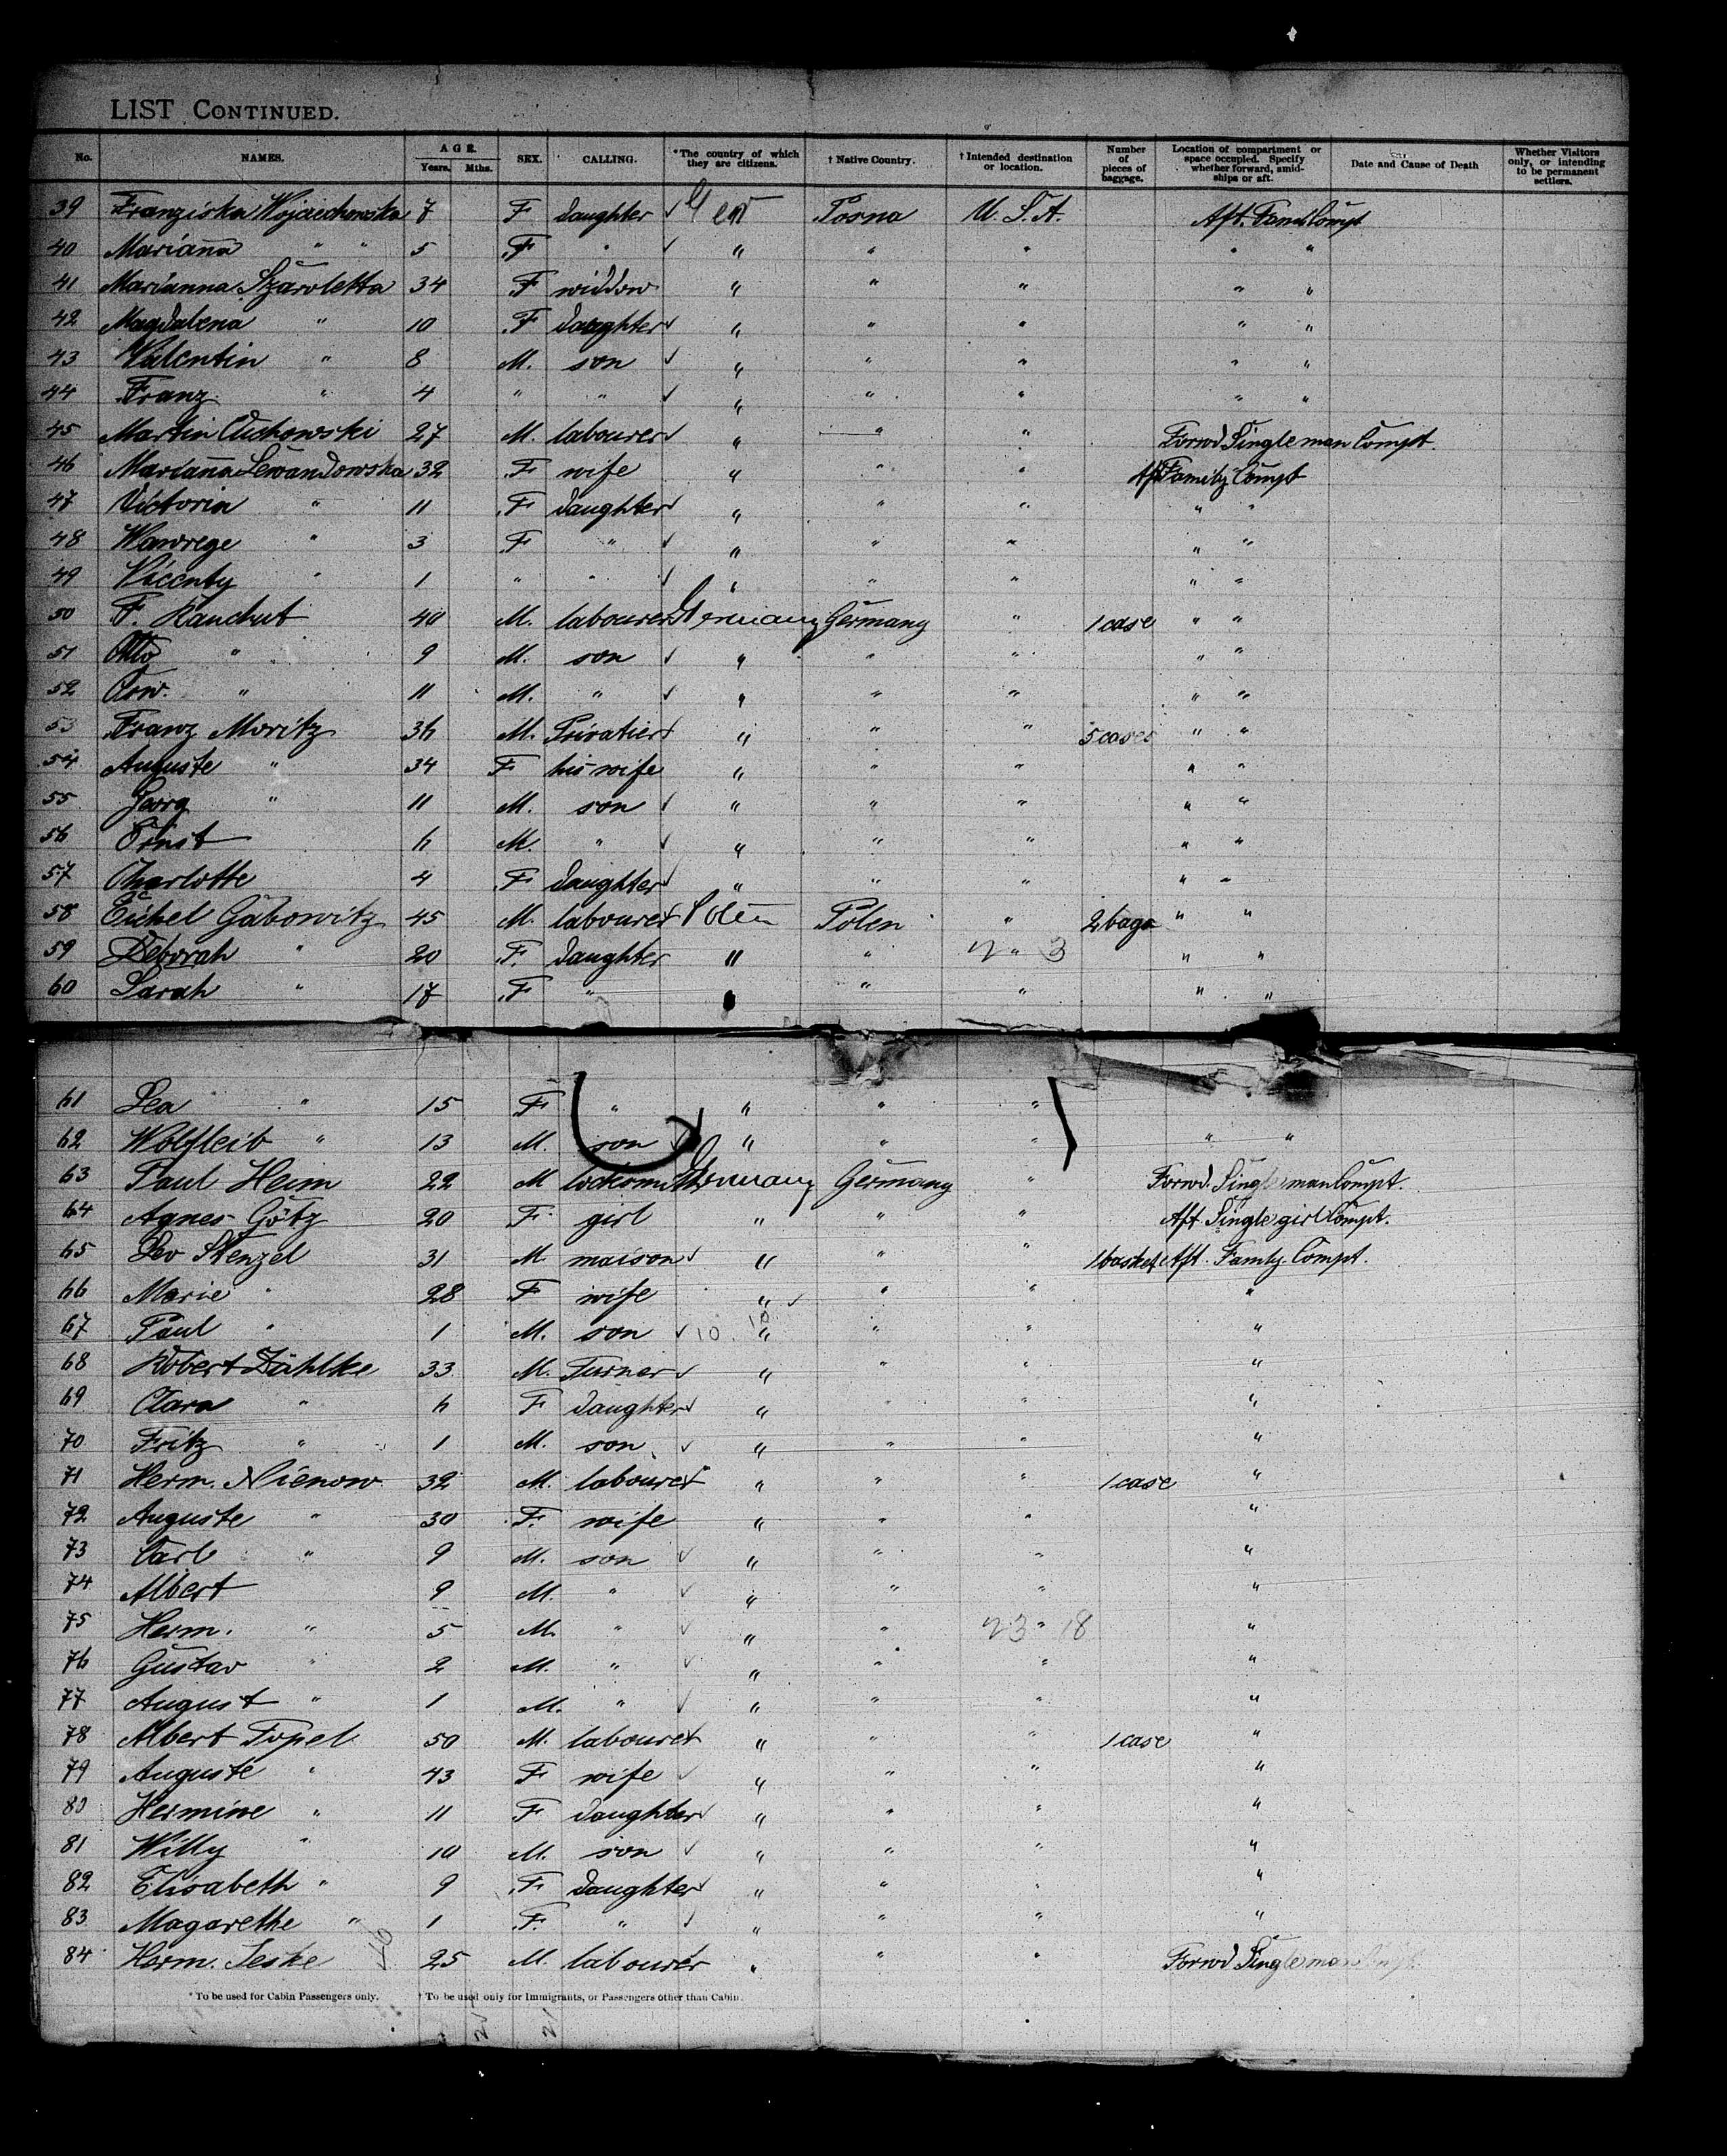 LIST CONTINUED.
No. NAMES. AGE. Years. Mths. SEX. CALLING. *The country of which they are citizens. † Native Country. † Intended destination or location. Number of pieces of baggage. Location of compartment or space occupied. Specify whether forward, amidships or aft. Date and Cause of Death Whether Visitors only, or intending to be permanent settlers.
39 Franziska Wojciechowska 7 F daughter ✓ Ger Posna U. S. A. Aft. Compt
40 Marianna " " 5 F " ✓ " " " " "
41 Marianna Szaroletta 34 F widdow " " " " "
42 Magdalena " 10 F daughter ✓ " " " " "
43 Valentin " 8 M. son ✓ " " " " "
44 Franz " 4 " " ✓ " " " " "
45 Martin 27 M. labourer ✓ " " " Forwd Single man Compt.
46 Marianna Lewandowska 32 F wife " " " Aft Family Compt
47 Victoria " 11 F daughter ✓ " " " " "
48 Wawrege " 3 F " ✓ " " " " "
49 Vicenty " 1 " " ✓ " " " " "
50 F. Kanchut 40 M. labourer Germany Germany " 1 case " "
51 Otto " 9 M. son ✓ " " " " "
52 " 11 M. " ✓ " " " " "
53 Franz Moritz 36 M. Privatier ✓ " " " 5 cases " "
54 Auguste " 34 F his wife " " " " "
55 Georg " 11 M. son ✓ " " " " "
56 Ernst 6 M. " ✓ " " " " "
57 Charlotte 4 F daughter ✓ " " " " "
58 Eichel Gabowitz 45 M. labourer Polen Polen " 2 bags " "
59 Deborah " 20 F. daughter " " " 3 " "
60 Sarah " 17 F " " " " "
61 Lea " 15 F " " " "
62 Wolfleib " 13 M. son ✓ " " " " "
63 Paul Heim 22 M locksmith Germany Germany " Forwd. Single man Compt.
64 Agnes Götz 20 F girl " " " Aft Single girl Compt.
65 Leo Stenzel 31 M. maison ✓ " " " 1 basket Aft. Famly. Compt.
66 Marie " 28 F wife " ✓ " " "
67 Paul " 1 M. son ✓ 10. 10 " " " "
68 Robert Zählke 33 M. Turner ✓ " " " "
69 Clara " 6 F daughter ✓ " " " "
70 Fritz " 1 M. son ✓ " " " "
71 Herm. Nienow 32 M. labourer " " " 1 case "
72 Auguste " 30 F. wife " " " "
73 Carl " 9 M. son ✓ " " " "
74 Albert 9 M. " ✓ " " " "
75 Herm. " 5 M. " ✓ " " 23 " 18 "
76 Gustav " 2 M. " ✓ " " " "
77 August " 1 M. " ✓ " " " "
78 Albert Topel 50 M. labourer " " " 1 case "
79 Auguste " 43 F wife ✓ " " " "
80 Hermine " 11 F daughter ✓ " " " "
81 Willy " 10 M. son ✓ " " " "
82 Elisabeth " 9 F daughter ✓ " " " "
83 Magarethe " 1 F. " ✓ " " " "
84 Herm. Jeske 25 M. labourer " " " Forwd Single man
* To be used for Cabin Passengers only. † To be used only for Immigrants, or Passengers other than Cabin.